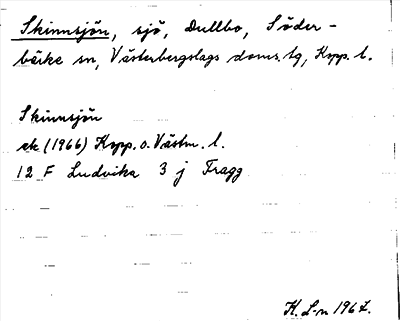 Skinnsjön, sjö, Dullbo, Söder-
bärke sn, Västerbergslags doms. tg, Kopp. l.
Skinnsjön
ek (1966) Kopp. o. Västm. l.
12 F Ludvika 3 j Fragg
K. L-n 1967.